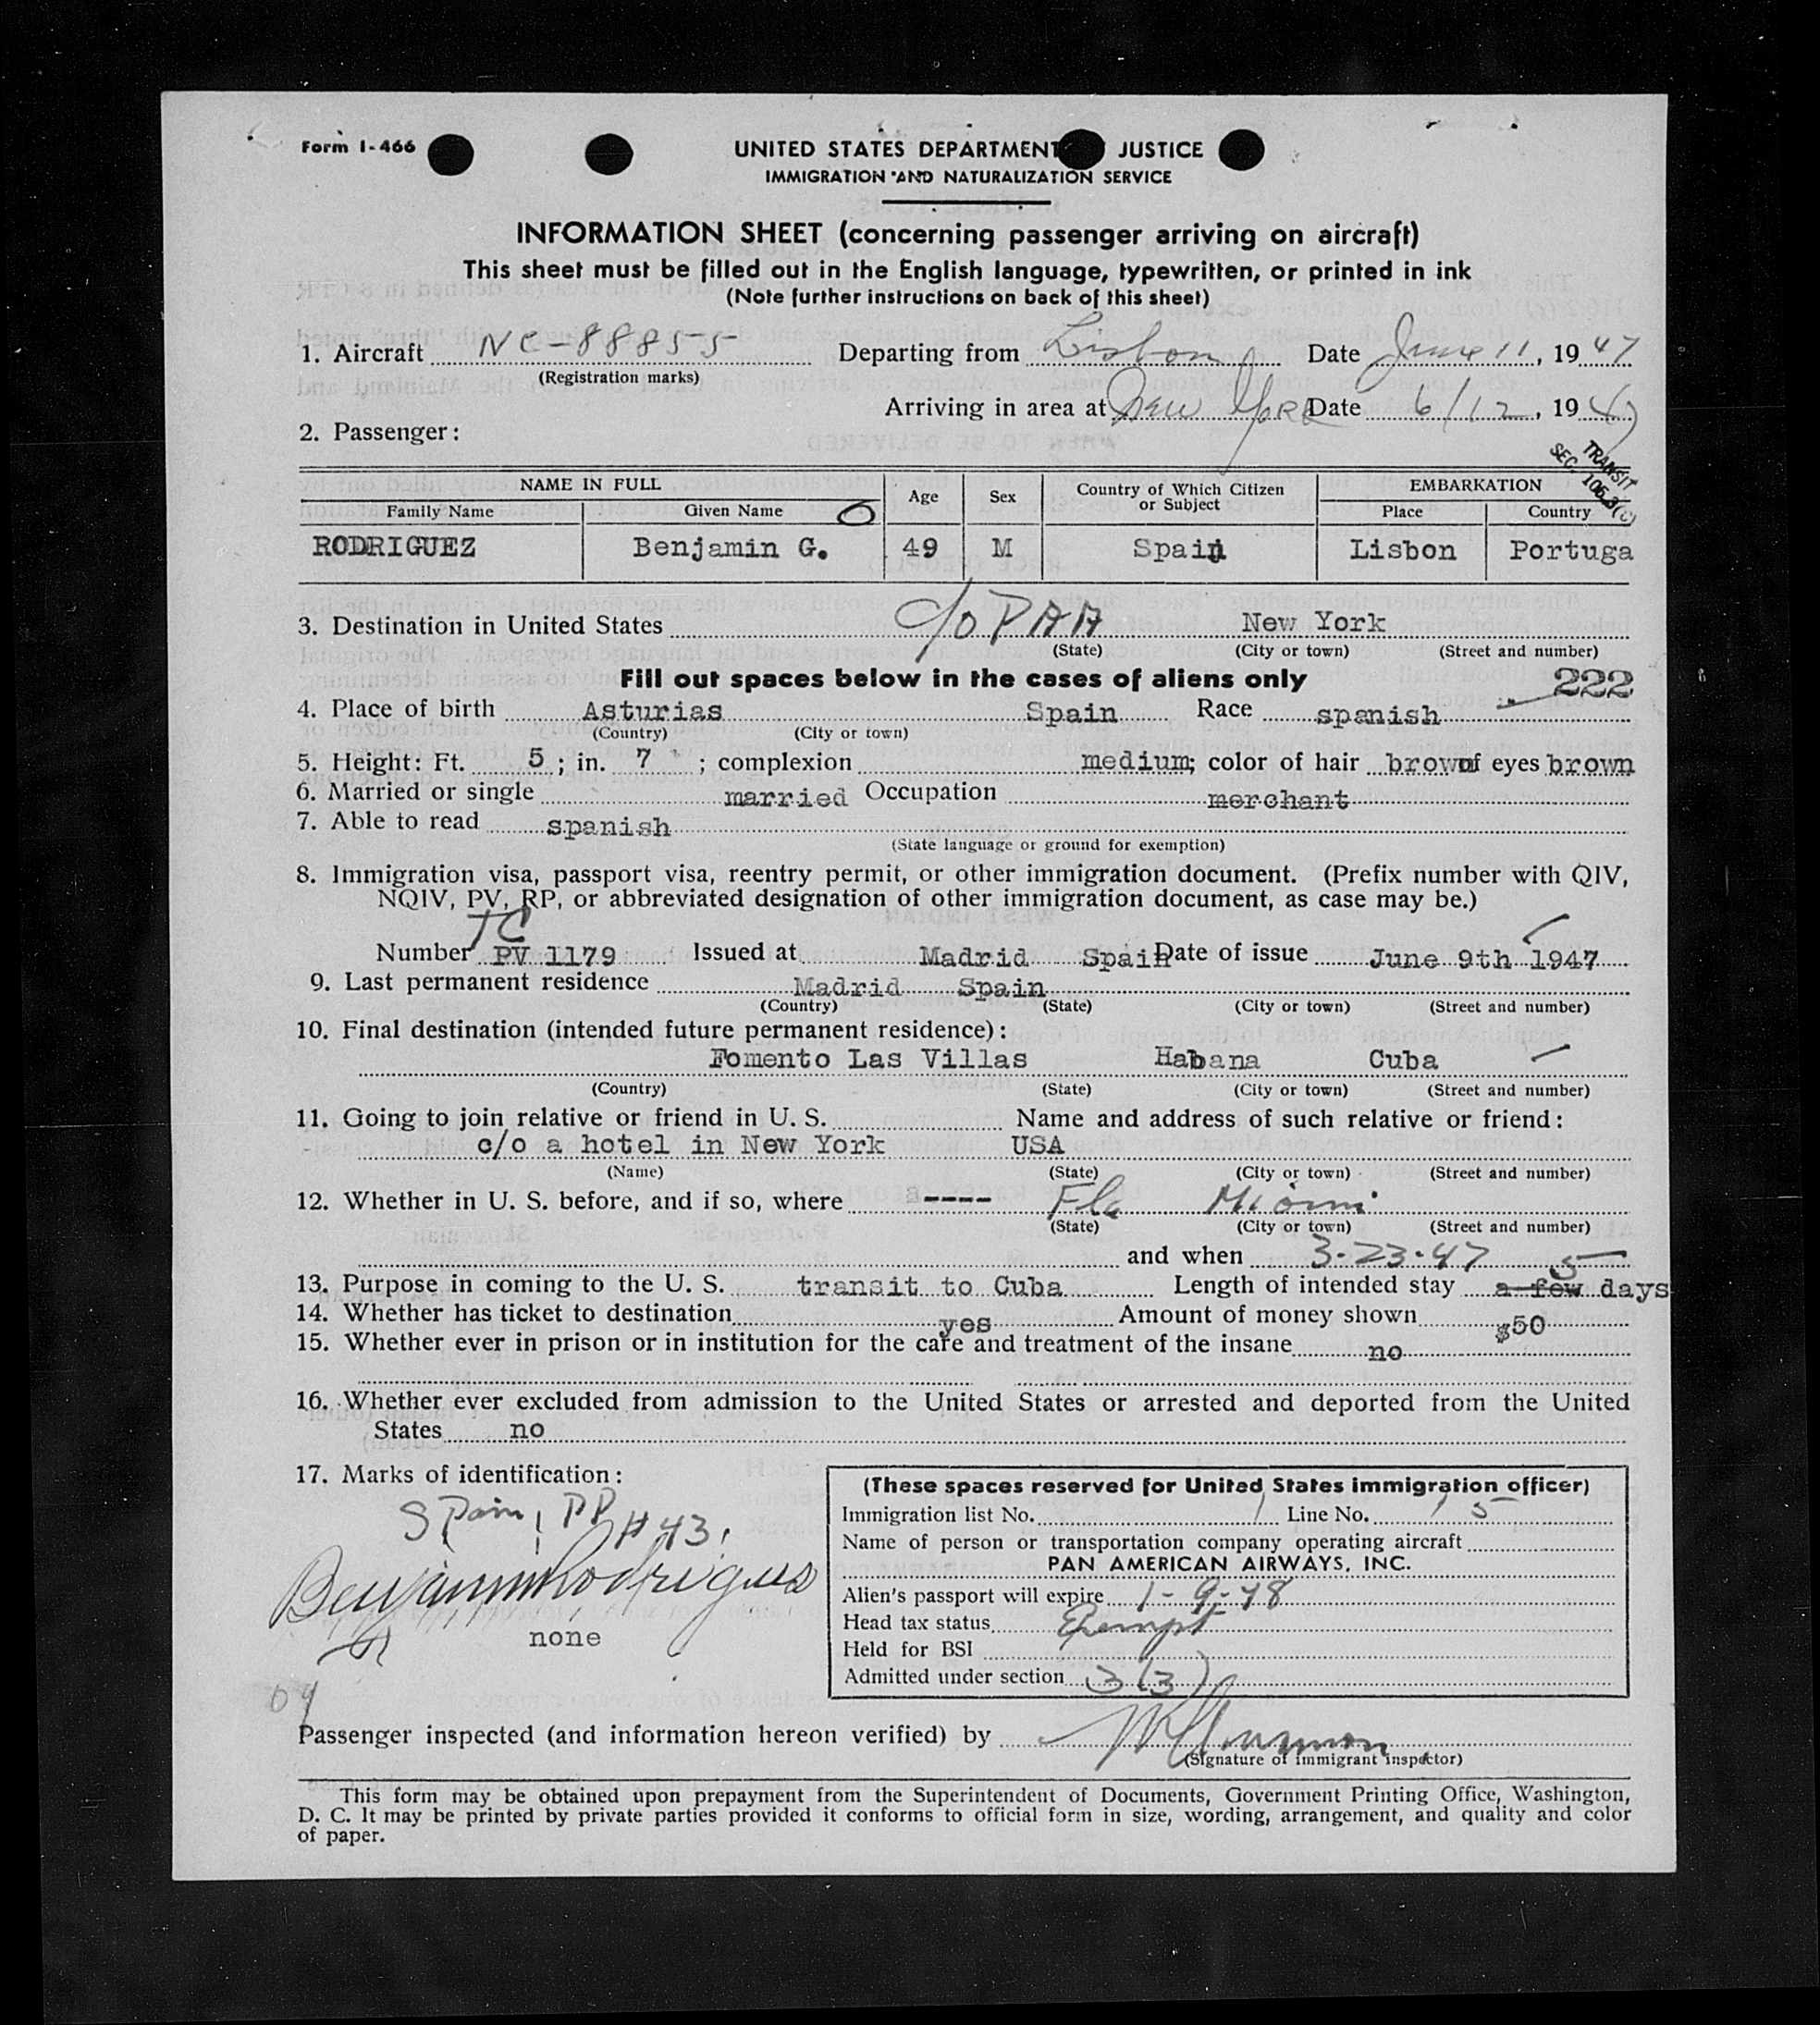 Form I-466
UNITED STATES DEPARTMENT JUSTICE
IMMIGRATION AND NATURALIZATION SERVICE
INFORMATION SHEET (concerning passenger arriving on aircraft)
This sheet must be filled out in the English language, typewritten, or printed in ink
(Note further instructions on back of this sheet)
1. Aircraft NC-88855 Departing from Lisbon Date June 11, 1947
(Registration marks)
Arriving in area at New York Date 6/12, 1947
2. Passenger:
TRANSIT
SEC. 106.3(c)
NAME IN FULL Age Sex Country of Which Citizen or Subject EMBARKATION
Family Name Given Name Place Country
RODRIGUEZ Benjamin G. 49 M Spain Lisbon Portuga
3. Destination in United States c/o PAA New York
(State) (City or town) (Street and number)
Fill out spaces below in the cases of aliens only 222
4. Place of birth Asturias Spain Race spanish
(Country) (City or town)
5. Height: Ft. 5; in. 7; complexion medium; color of hair brown of eyes brown
6. Married or single married Occupation merchant
7. Able to read spanish
(State language or ground for exemption)
8. Immigration visa, passport visa, reentry permit, or other immigration document. (Prefix number with QIV,
NQIV, PV, RP, or abbreviated designation of other immigration document, as case may be.)
TC
Number PV 1179 Issued at Madrid Spain Date of issue June 9th 1947
9. Last permanent residence Madrid Spain
(Country) (State) (City or town) (Street and number)
10. Final destination (intended future permanent residence):
Fomento Las Villas Habana Cuba
(Country) (State) (City or town) (Street and number)
11. Going to join relative or friend in U. S. Name and address of such relative or friend:
c/o a hotel in New York USA
(Name) (State) (City or town) (Street and number)
12. Whether in U. S. before, and if so, where ---- Fla Miami
(State) (City or town) (Street and number)
and when 3-23-47
13. Purpose in coming to the U. S. transit to Cuba Length of intended stay a few 5 days
14. Whether has ticket to destination yes Amount of money shown $50
15. Whether ever in prison or in institution for the care and treatment of the insane no
16. Whether ever excluded from admission to the United States or arrested and deported from the United
States no
17. Marks of identification:
Spain PP #43
Benjamin Rodriguez
none
(These spaces reserved for United States immigration officer)
Immigration list No. 1 Line No. 5
Name of person or transportation company operating aircraft
PAN AMERICAN AIRWAYS, INC.
Alien's passport will expire 1-9-48
Head tax status Exempt
Held for BSI
Admitted under section 3(3)
Passenger inspected (and information hereon verified) by
(Signature of immigrant inspector)
This form may be obtained upon prepayment from the Superintendent of Documents, Government Printing Office, Washington,
D. C. It may be printed by private parties provided it conforms to official form in size, wording, arrangement, and quality and color
of paper.